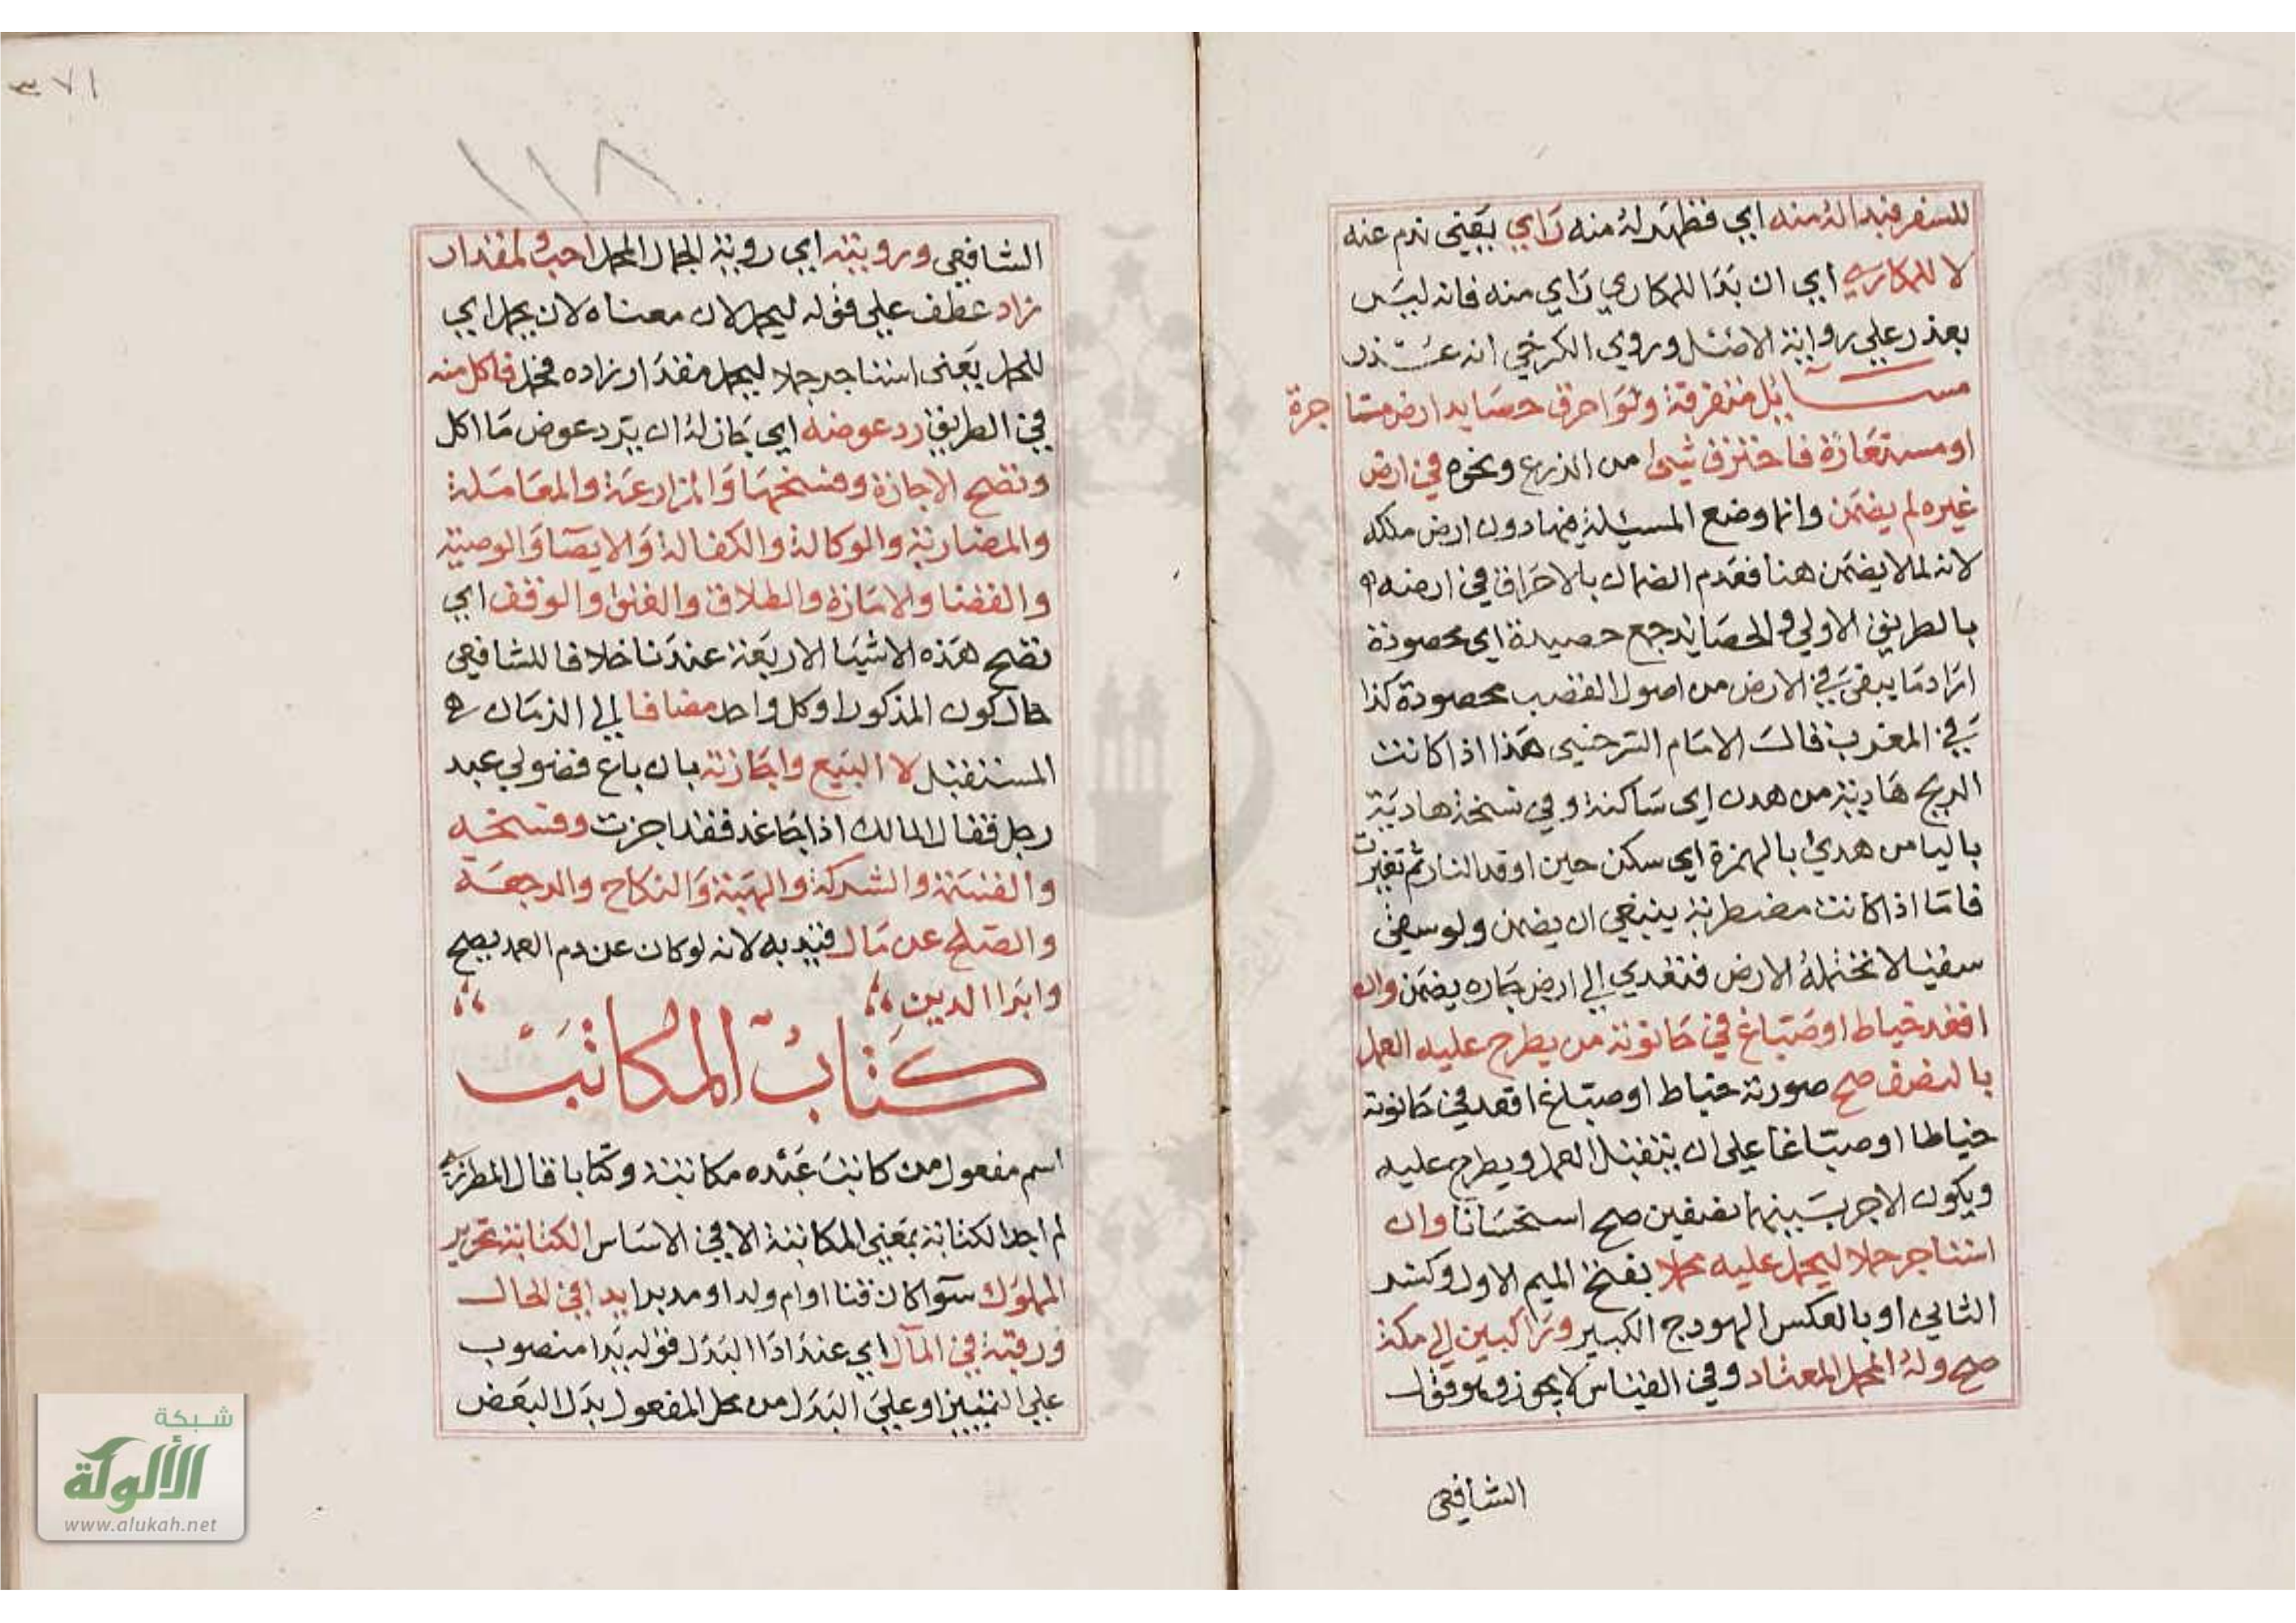 للسفر فبدا له منه اي فظهر له منه راي يعني ندم عنه
لا للمكاري اي ان بدا للمكاري راي منه فانه ليس
بعذر علي رواية الاصل وروي الكرخي انه عذر
مسائل متفرقة ولو احرق حصايد ارض مستاجرة
او مستعارة فاحترق شيئ من الزرع ونحوه في ارض
غيره لم يضمن وانما وضع المسئلة فيها دون ارض ملكه
لانه لما لا يضمن هنا فعدم الضمان بالاحراق في ارضه
بالطريق الاولي والحصايد جمع حصيدة اي محصودة
اراد ما يبقي في الارض من اصول القصب محصودة كذا
في المغرب قال الامام السرخسي هذا اذا كانت
الريح هادنة من هدن اي ساكنة وفي نسخة هادية
باليا من هدئ بالهمزة اي سكن حين اوقد النار ثم تغيرت
فاما اذا كانت مضطربة ينبغي ان يضمن ولو سقي
سقيا لا تحتمله الارض فتعدي الي ارض جاره يضمن وان
اقعد خياط او صباغ في حانوته من يطرح عليه العمل
بالنصف صح صورته خياط او صباغ اقعد في حانوته
خياطا او صباغا علي ان يتقبل العمل ويطرح عليه
ويكون الاجر بينهما نصفين صح استحسانا وان
استاجر جملا ليحمل عليه محملا بفتح الميم الاول وكسر
الثاني او بالعكس الهودج الكبير وراكبين الي مكة
صح وله المحمل المعتاد وفي القياس لا يجوز وهو قول
الشافعي
١١٨
٣٧١
الشافعي ورويته اي روية الجمال المحمل احب ولمقدار
زاد عطف علي قوله ليحمل لان معناه لان يحمل اي
للحمل يعني استاجر جملا ليحمل مقدار زاده فحمل فاكل منه
في الطريق رد عوضه اي جاز له ان يرد عوض ما اكل
وتصح الاجارة وفسخها والمزارعة والمعاملة
والمضاربة والوكالة والكفالة والايصا والوصية
والقضا والامارة والطلاق والعتق والوقف اي
تصح هذه الاشيا الاربعة عندنا خلافا للشافعي
حال كون المذكور او كل واحد مضافا الي الزمان
المستقبل لا البيع واجازته بان باع فضولي عبد
رجل فقال المالك اذا جا غد فقد اجزت وفسخه
والقسمة والشركة والهبة والنكاح والرجعة
والصلح عن مال قيد به لانه لو كان عن دم العمد يصح
وابرا الدين
كتاب المكاتب
اسم مفعول من كاتب عبده مكاتبة وكتابا قال المطرزي
لم اجد الكتابة بمعني المكاتبة الا في الاساس الكتابة تحرير
المملوك سوا كان قنا او ام ولد او مدبرا يدا في الحال
ورقبة في المآل اي عند ادا البدل قوله يدا منصوب
علي التمييز او علي البدل من محل المفعول بدل البعض
شبكة
الألوكة
www.alukah.net